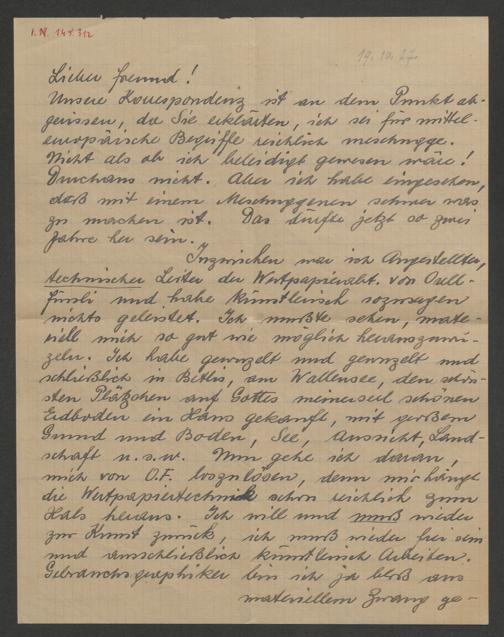 I.N. 149.312
19.10.77.
Lieber Freund!
Unsere Korrespondenz ist an dem Punkt ab-
gerissen, da Sie erklärten, ich sei für mittel-
europäische Begriffe reichlich meschugge.
Nicht als ob ich beleidigt gewesen wäre!
Durchaus nicht. Aber ich habe eingesehen,
daß mit einem Meschuggenen schwer was
zu machen ist. Das dürfte jetzt so zwei
Jahre her sein.
Inzwischen war ich Angestellter,
technischer Leiter der Wertpapierabt. von Orell-
füssli und habe künstlerisch sozusagen
nichts geleistet. Ich mußte sehen, mate-
riell mich so gut wie möglich herauszuwur-
zeln. Ich habe gewurzelt und gewurzelt und
schließlich in Betlis, am Wallensee, den schön-
sten Plätzchen auf Gottes meinerseel schönen
Erdboden ein Haus gekauft, mit großem
Grund und Boden, See, Aussicht, Land-
schaft u.s.w. Nun gehe ich daran,
mich von O.F. loszulösen, denn mir hängt
die Wertpapiertechnik schon reichlich zum
Hals heraus. Ich will und muß wieder
zur Kunst zurück, ich muß wieder frei sein
und ausschließlich künstlerisch arbeiten.
Gebrauchsgraphiker bin ich ja bloß aus
materiellem Zwang ge-